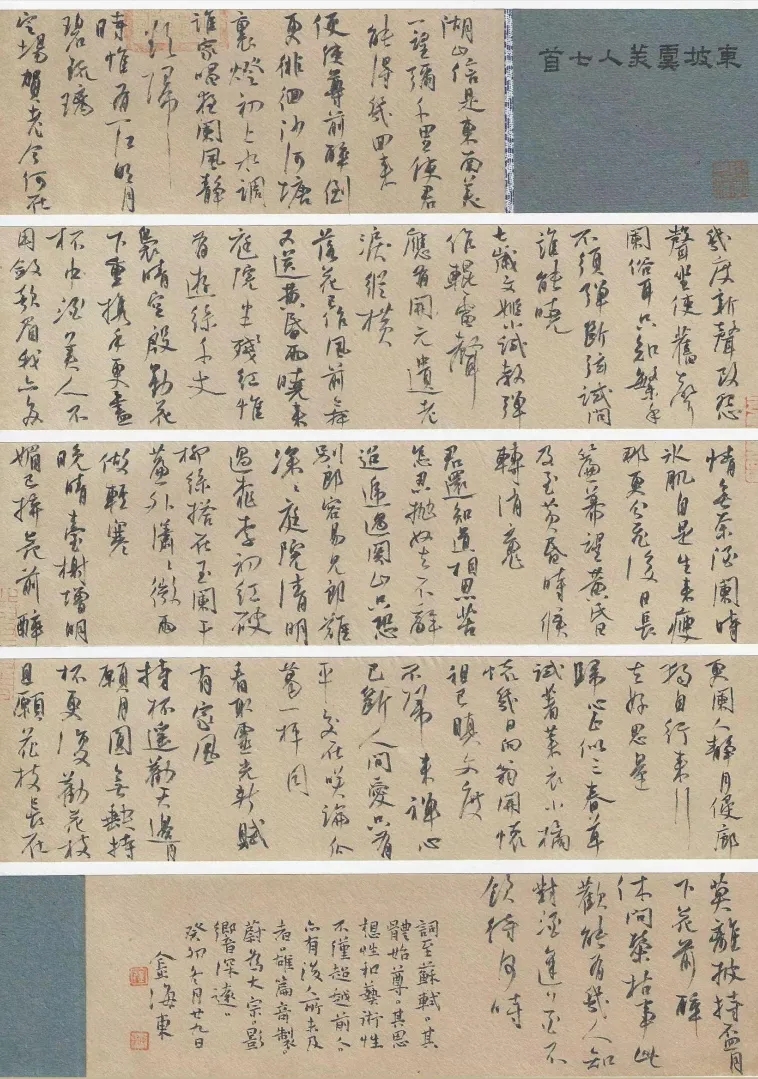 東坡虞美人七首
湖山信是東南美
一望彌千里使君
能得幾回來
便使尊前醉倒
更徘徊沙河塘
裏燈初上水調
誰家唱夜闌風靜
欲歸
時惟有一江明月
碧琉璃
定場賀老今何在
幾度新聲改怨
聲坐使舊聲
闌俗耳只知繁手
不須彈斷弦試問
誰能曉
七歲文姬小試教彈
作輥雷聲
應有開元遺老
淚縱橫
落花已作風前舞
又送黃昏雨曉來
庭院半殘紅惟
有遊絲千丈
裊晴空殷勤花
下重攜手更盡
杯中酒美人不
用斂歌眉我亦多
情無奈酒闌時
冰肌自是生來瘦
那更分飛後日長
簾幕望黃昏
及至黃昏時候
轉消魂
君還知道相思苦
怎忍拋奴去不辭
迢遞過關山只恐
別郎容易見郎難
深深庭院清明
過桃李初紅破
柳絲搭在玉闌干
簾外瀟瀟微雨
做輕寒
晚晴臺榭增明
媚已拚花前醉
更闌人靜月侵廊
獨自行來行
去好思量
歸心正似三春草
試著萊衣小橘
懷幾日向翁開懷
祖已瞋文度
不歸來禪心
已斷人間愛只有
平交在笑論瓜
葛一枰同
看取靈光新賦
有家風
持杯遙勸天邊月
願月圓無缺持
杯更復勸花枝
且願花枝長在
莫離披持杯月
下花前醉
休問榮枯事此
歡能有幾人知
對酒逢花不
飲待何時
詞至蘇軾。其
體始尊。其思
想性和藝術性
不僅超越前人。
亦有後人所未及
者。雄篇奇製。
蔚為大宗。影
響深遠。
癸卯冬月廿九日
金海東